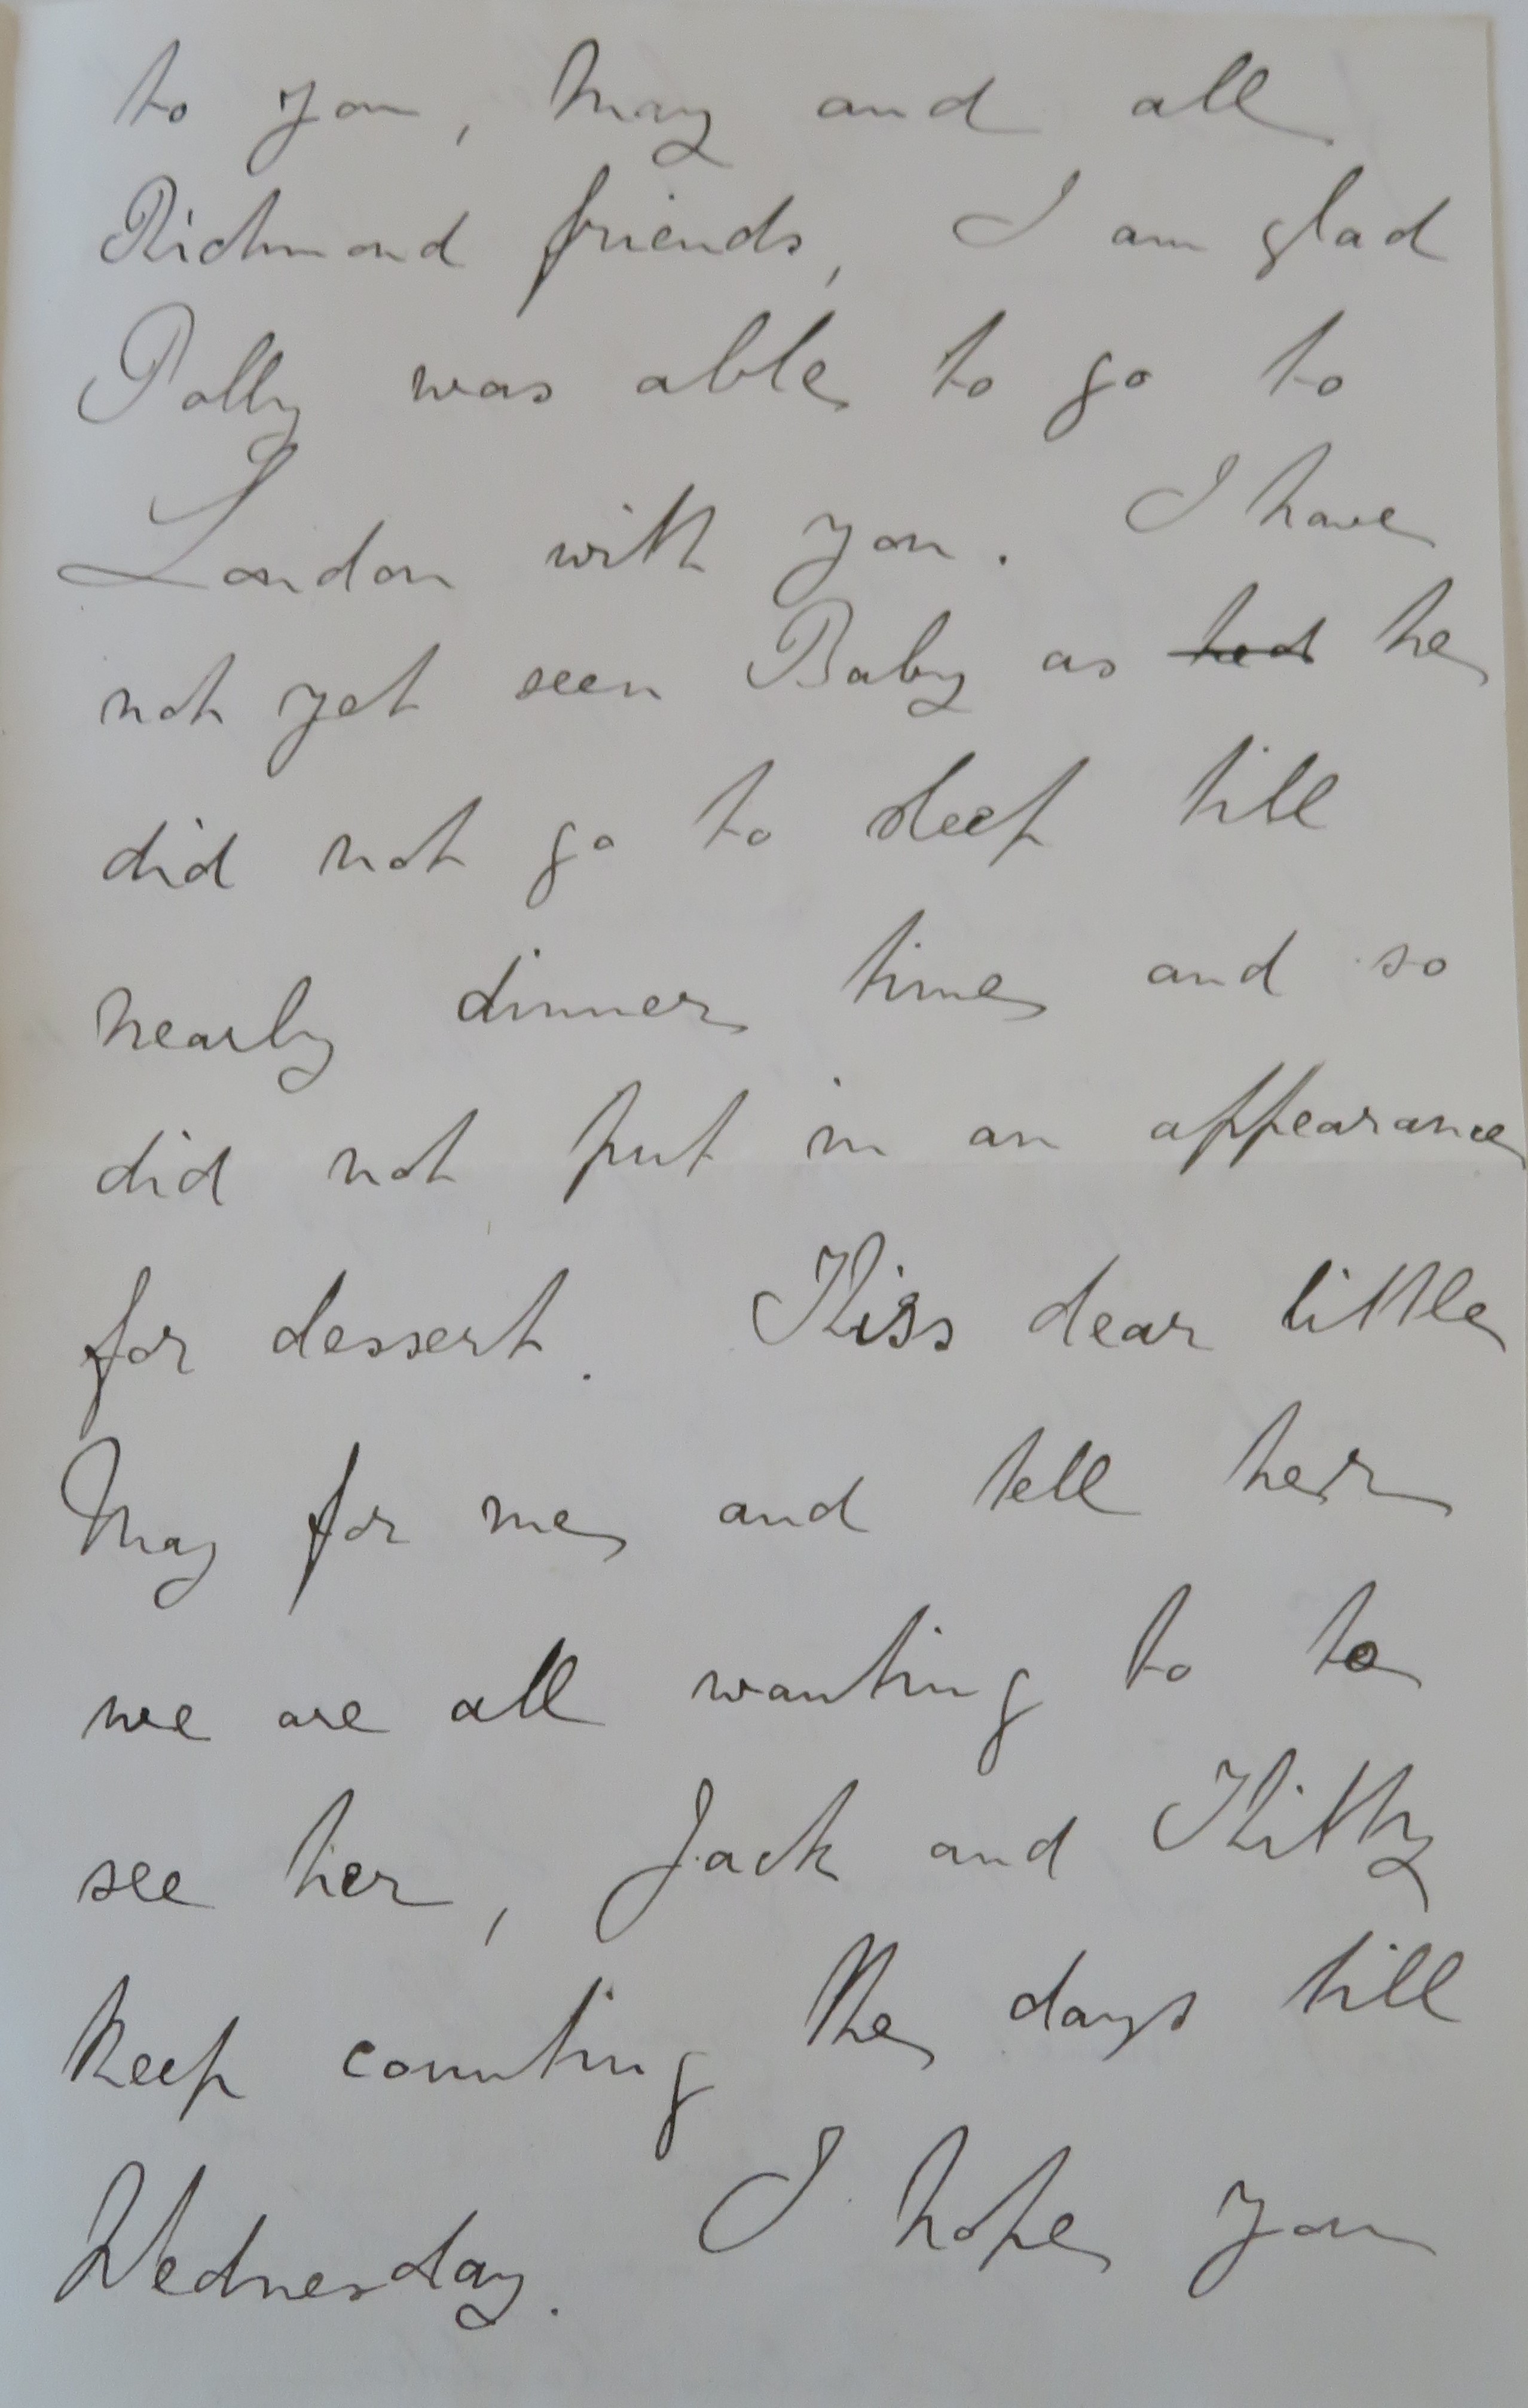 to you, May and all
Richmond friends, I am glad
Polly was able to go to
London with you. I have
not yet seen Baby as had he
did not go to sleep till
nearly dinner time and so
did not put in an appearance
for dessert. Kiss dear little
May for me and tell her
we are all wanting to to
see her, Jack and Kitty
keep counting the days till
Wednesday. I hope you